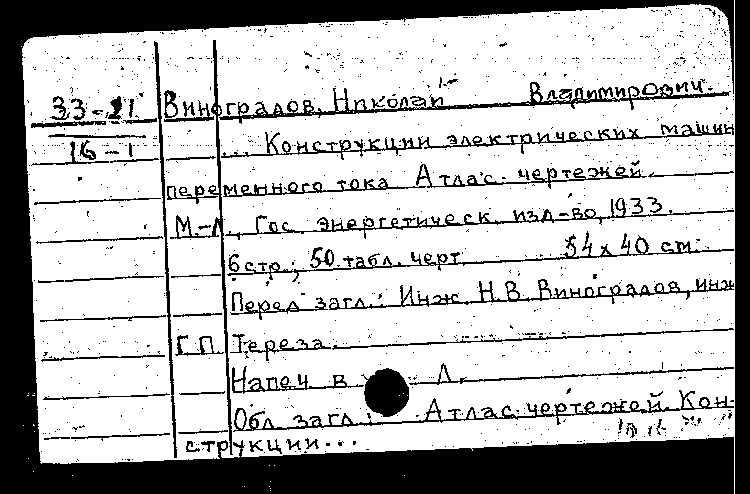 33-21 Виноградов, Николай Владимирович.
16-1 ... Конструкции электрических машин
переменного тока Атлас чертежей.
М.-Л., Гос. энергетическ. изд-во, 1933.
6 стр.; 50 табл. черт 54 х 40 см.
Перед загл.: Инж. Н.В. Виноградов, инж
Г.П. Тереза.
Напеч в Л.
Обл. загл.: Атлас чертежей. Кон-
струкции...